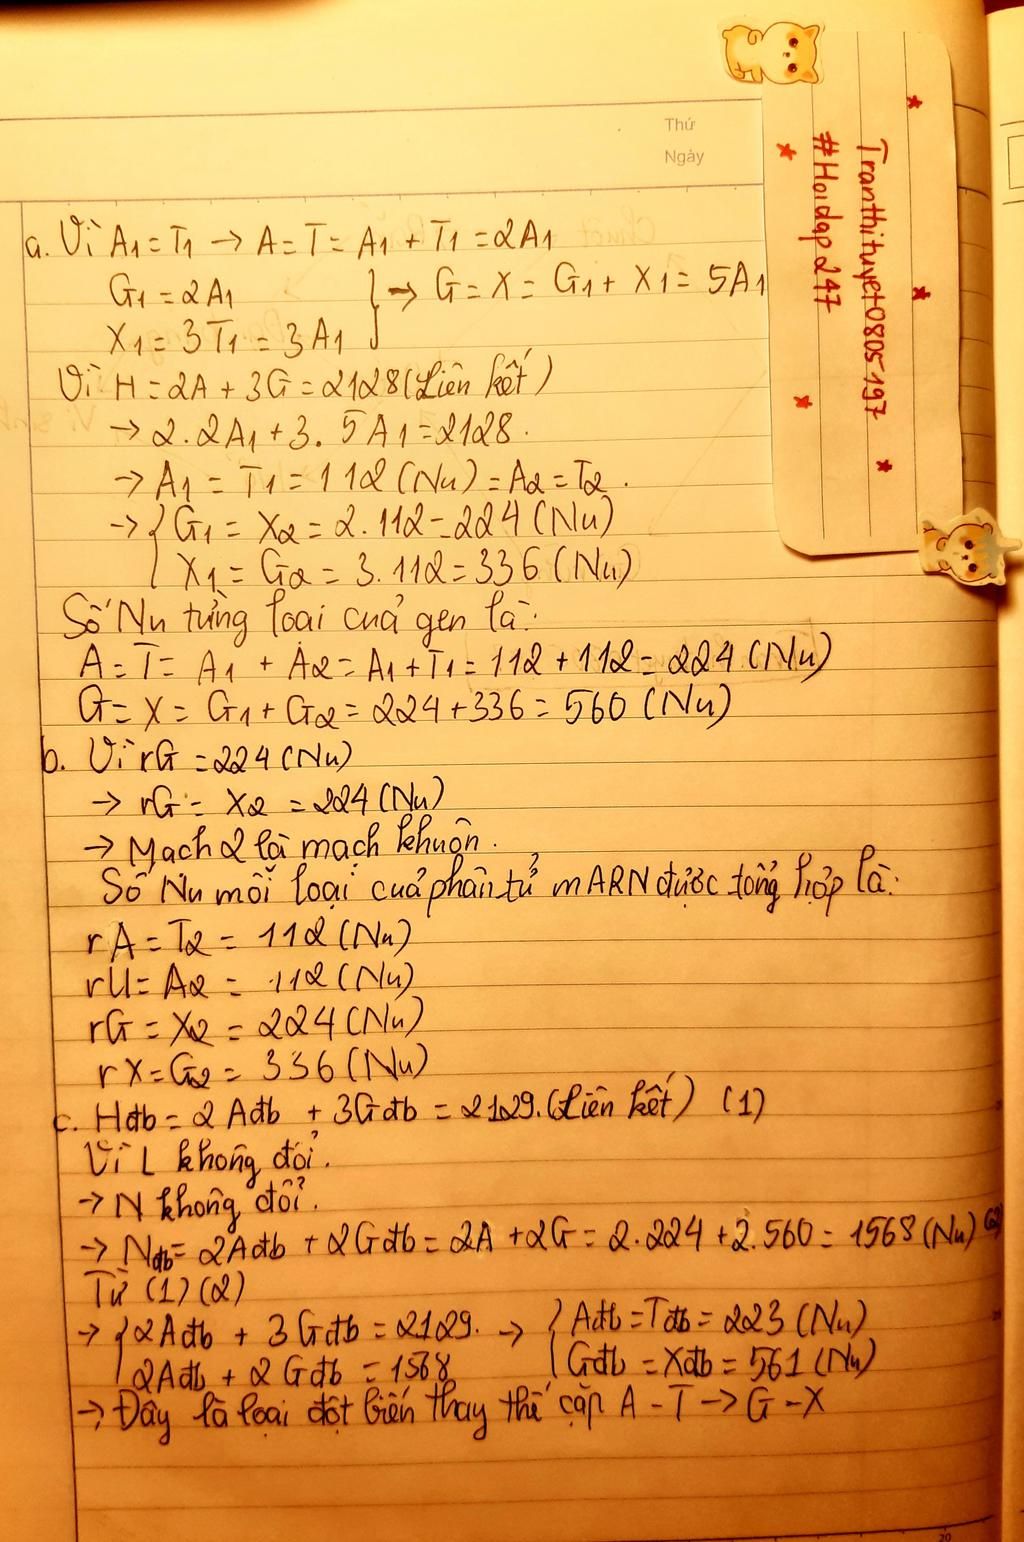 Thứ
Ngày
Tranthituyet0805197
#Hoidap247
a. Vì A1 = T1 → A = T = A1 + T1 = 2A1
G1 = 2A1
X1 = 3T1 = 3A1 } → G = X = G1 + X1 = 5A1
Vì H = 2A + 3G = 2128 (Liên kết)
→ 2.2A1 + 3. 5A1 = 2128.
→ A1 = T1 = 112 (Nu) = A2 = T2.
→ { G1 = X2 = 2.112 = 224 (Nu)
X1 = G2 = 3.112 = 336 (Nu)
Số Nu từng loại của gen là:
A = T = A1 + A2 = A1 + T1 = 112 + 112 = 224 (Nu)
G = X = G1 + G2 = 224 + 336 = 560 (Nu)
b. Vì rG = 224 (Nu)
→ rG = X2 = 224 (Nu)
→ Mạch 2 là mạch khuôn.
Số Nu mỗi loại của phân tử mARN được tổng hợp là:
rA = T2 = 112 (Nu)
rU = A2 = 112 (Nu)
rG = X2 = 224 (Nu)
rX = G2 = 336 (Nu)
c. Hđb = 2Ađb + 3Gđb = 2129. (Liên kết) (1)
Vì L không đổi.
→ N không đổi.
→ Nđb = 2Ađb + 2Gđb = 2A + 2G = 2.224 + 2.560 = 1568 (Nu) (2)
Từ (1) (2)
→ { 2Ađb + 3Gđb = 2129. → { Ađb = Tđb = 223 (Nu)
2Ađb + 2Gđb = 1568 Gđb = Xđb = 561 (Nu)
→ Đây là loại đột biến thay thế cặp A - T → G - X
20